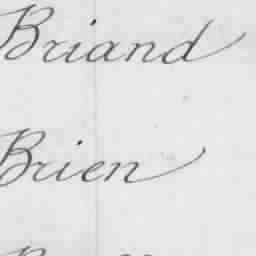 Briand
Brien